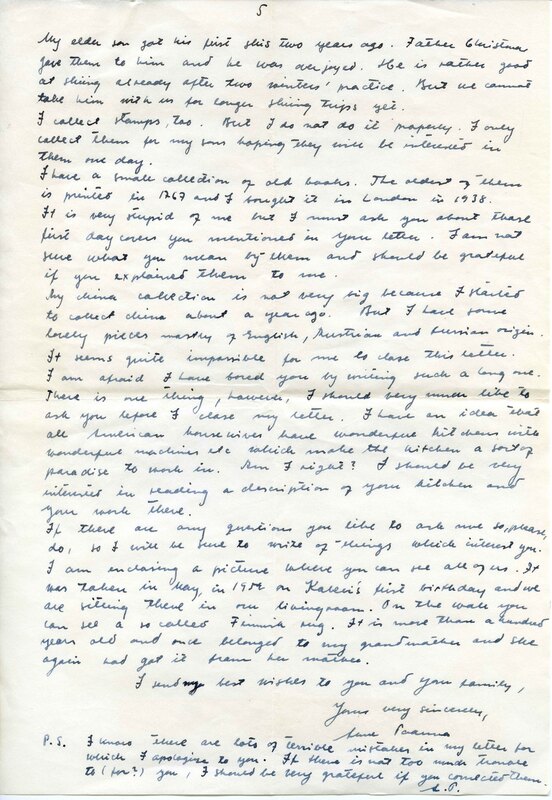 5
My elder son got his first skis two years ago. Father Christmas
gave them to him and he was overjoyed. He is rather good
at skiing already after two winters' practice. But we cannot
take him with us for longer skiing trips yet.
I collect stamps, too. But I do not do it properly. I only
collect them for my sons hoping they will be interested in
them one day.
I have a small collection of old books. The oldest of them
is printed in 1767 and I bought it in London in 1938.
It is very stupid of me but I must ask you about those
first day covers you mentioned in your letter. I am not
sure what you mean by them and should be grateful
if you explained them to me.
My china collection is not very big because I started
to collect china about a year ago. But I have some
lovely pieces mostly of English, Austrian and Russian origin.
It seems quite impossible for me to close this letter.
I am afraid I have bored you by writing such a long one.
There is one thing, however, I should very much like to
ask you before I close my letter. I have an idea that
all American housewives have wonderful kitchens with
wonderful machines etc which make the kitchen a sort of
paradise to work in. Am I right? I should be very
interested in reading a description of your kitchen and
your work there.
If there are any questions you like to ask me so, please,
do, so I will be sure to write of things which interest you.
I am enclosing a picture where you can see all of us. It
was taken in May, in 1954 on first birthday and we
are sitting there in our livingroom. On the wall you
can see a so called Finnish rug. It is more than a hundred
years old and once belonged to my grandmother and she
again had got it from her mother.
I send my best wishes to you and your family,
Yours very sincerely,
P.S. I know there are lots of terrible mistakes in my letter for
which I apologise to you. If there is not too much trouble
to (for?) you, I should be very grateful if you corrected them.